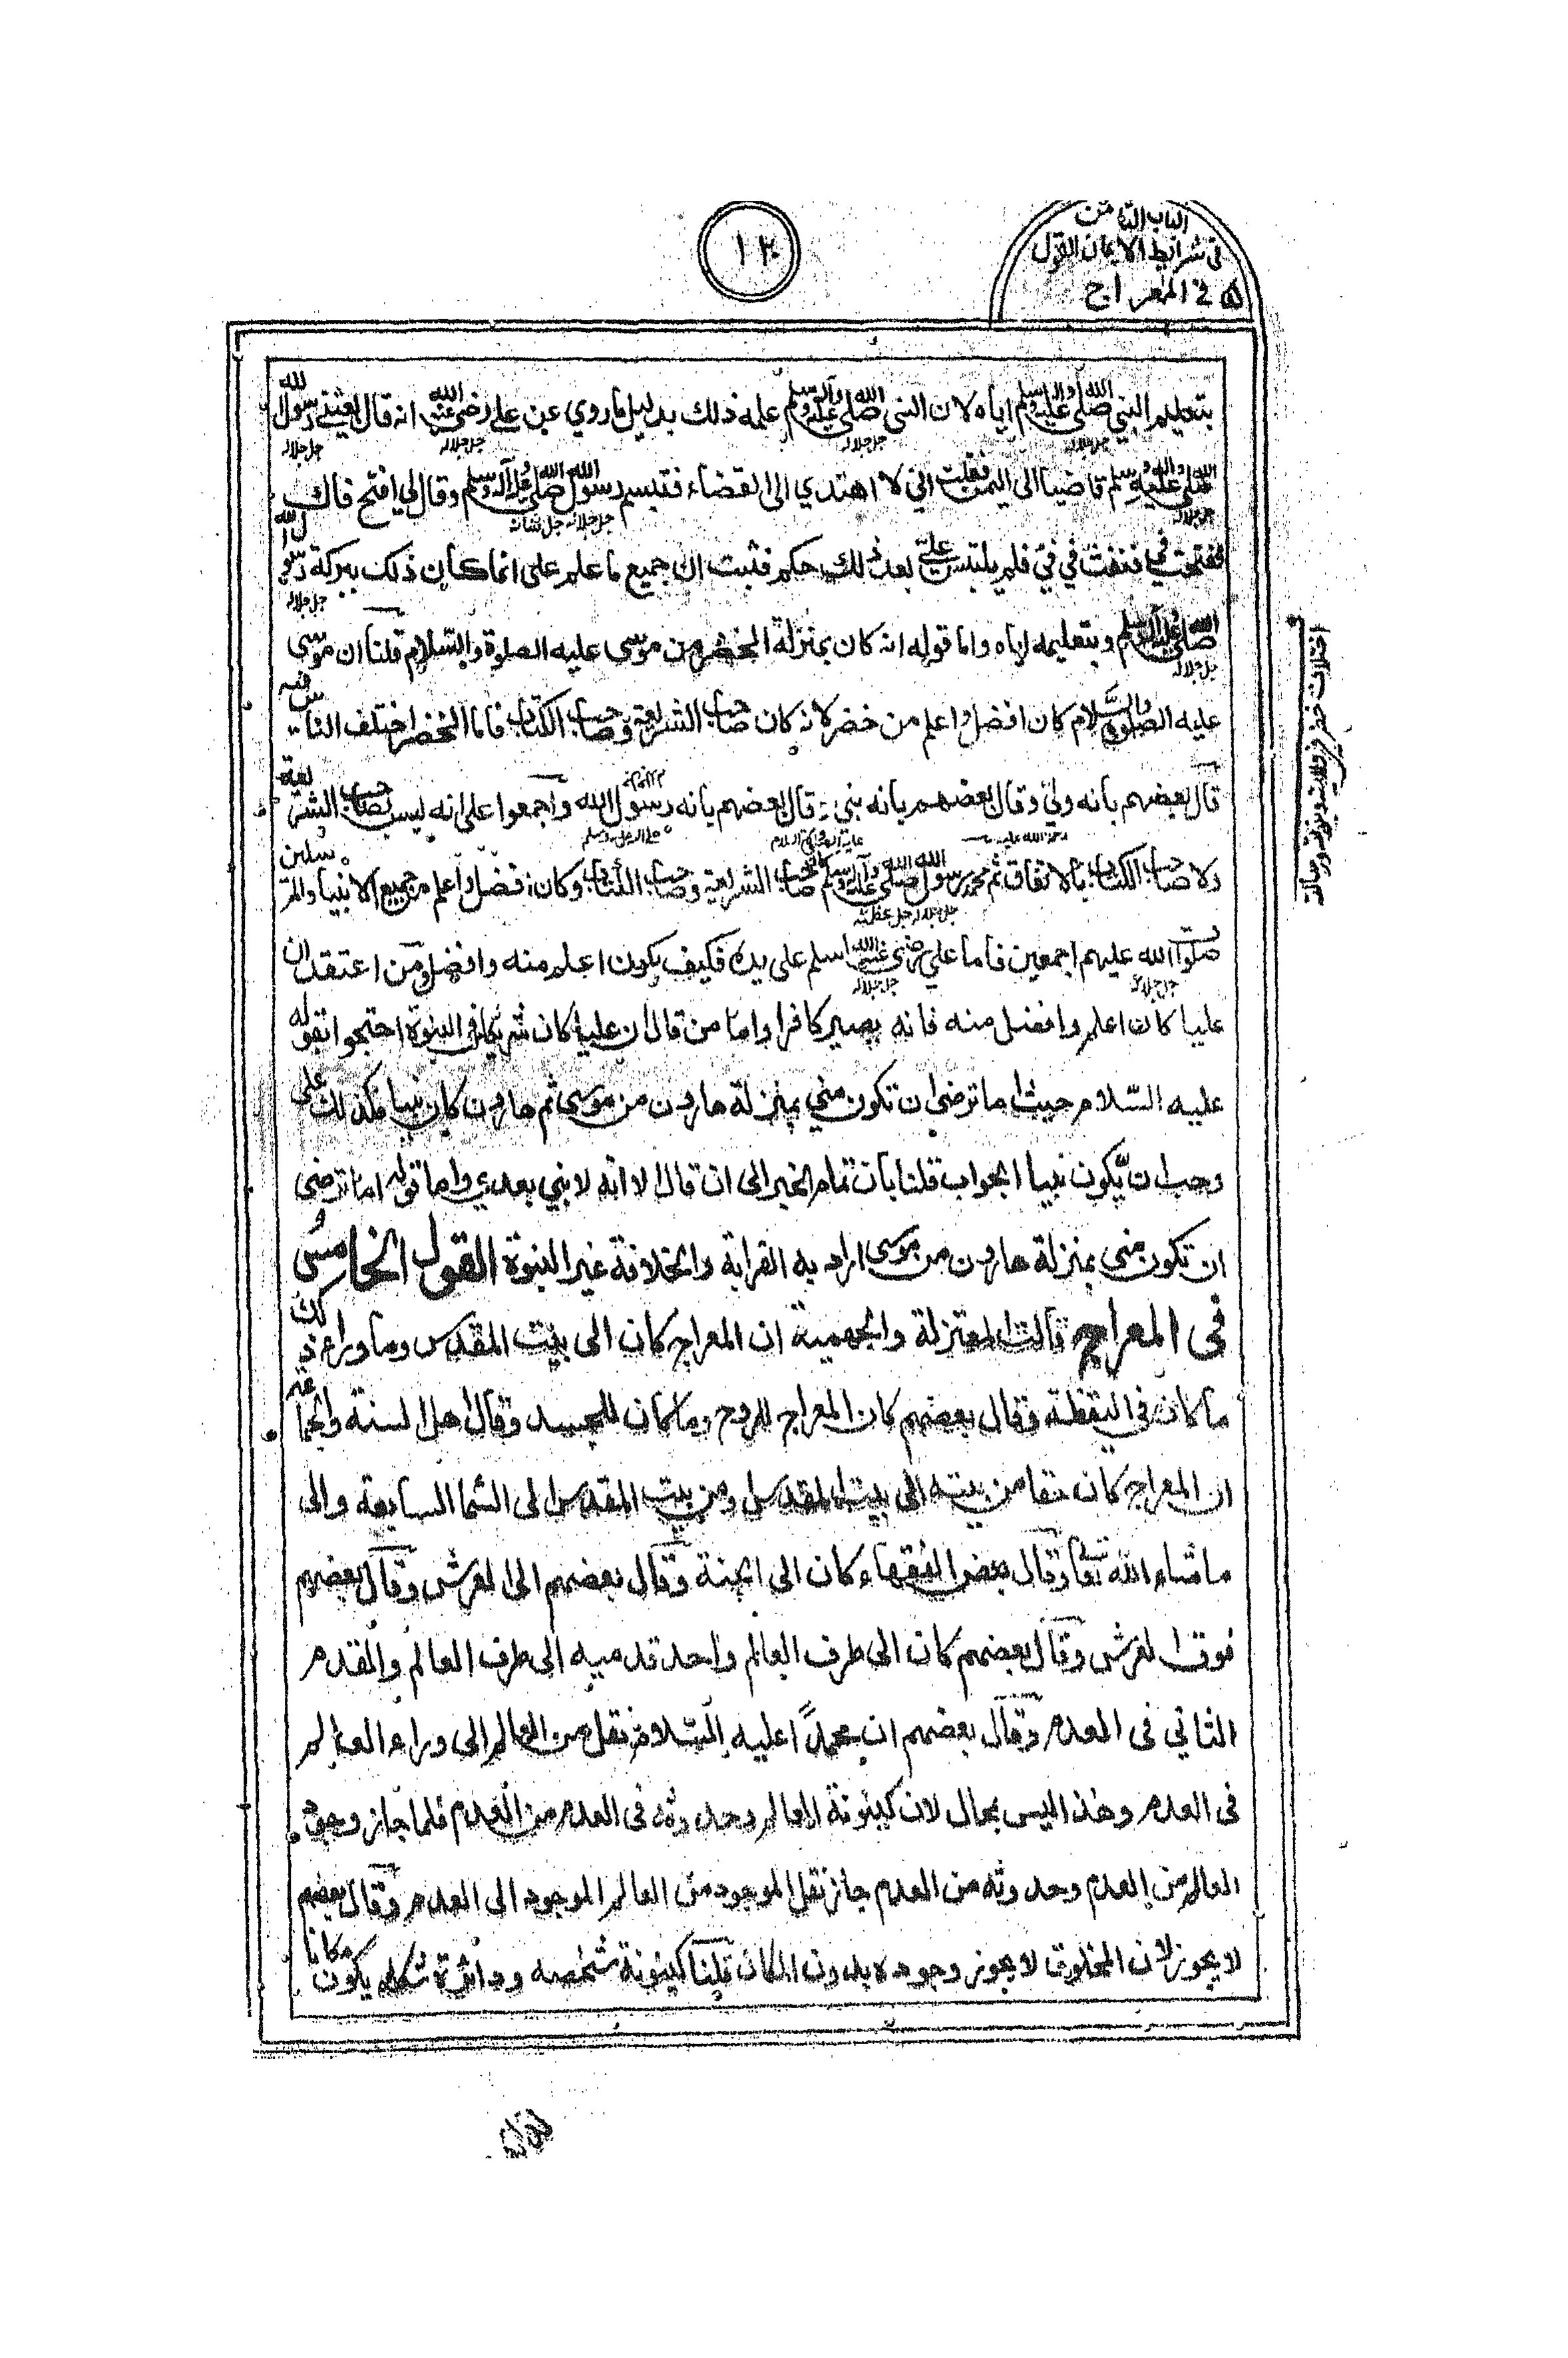 الباب الثامن
في شرائط الايمان القول
٥ في المعراج
١٢٠
بتعليم النبي صلى الله عليه واله وسلم اياه لان النبي صلى الله عليه وآله وسلم علمه ذلك بدليل ما روي عن علي رضي الله عنه انه قال بعثني رسول الله
صلى الله عليه واله وسلم قاضيا الى اليمن فقلت اني لا اهتدي الى القضاء فتبسم رسول الله صلى الله عليه وآله وسلم وقال لي افتح فاك
ففتحت فمي فنفث في فيّ فلم يلتبس عليّ بعد ذلك حكم فثبت ان جميع ما علم علي انما كان ذلك ببركة رسول الله
صلى الله عليه وآله وسلم وبتعليمه اياه واما قوله انه كان بمنزلة الخضر من موسى عليه الصلوة والسلام قلنا ان موسى
عليه الصلوة والسلام كان افضل واعلم من خضر لانه كان صاحب الشريعة وصاحب الكتاب فاما الخضر اختلف الناس فيه
قال بعضهم بانه ولي وقال بعضهم بانه نبي وقال بعضهم بانه رسول الله واجمعوا على انه ليس بصاحب الشريعة
ولا صاحب الكتاب بالاتفاق ثم محمد رسول الله صلى الله عليه وآله وسلم كان صاحب الشريعة وصاحب الكتاب وكان افضل واعلم من جميع الانبياء والمرسلين
صلوات الله عليهم اجمعين فاما علي رضي الله عنه اسلم على يده فكيف يكون اعلم منه وافضل ومن اعتقد ان
عليا كان اعلم وافضل منه فانه يصير كافرا واما من قال ان عليا كان شريكا في النبوة احتجوا بقوله
عليه السلام حيث اما ترضى ان تكون مني بمنزلة هارون من موسى ثم هارون كان نبيا فكذلك علي
وجب ان يكون نبيا الجواب قلنا بان تمام الخبر الى ان قال الا انه لا نبي بعدي واما قوله اما ترضى
ان تكون مني بمنزلة هارون من موسى اراد به القرابة والخلافة غير النبوة القول الخامس
في المعراج قالت المعتزلة والجهمية ان المعراج كان الى بيت المقدس وما وراء ذلك
ما كان في اليقظة وقال بعضهم كان المعراج للروح وما كان للجسد وقال اهل السنة والجماعة
ان المعراج كان حقا من بيته الى بيت المقدس ومن بيت المقدس الى السما السابعة والى
ما شاء الله تعالى وقال بعض الفقهاء كان الى الجنة وقال بعضهم الى العرش وقال بعضهم
فوق العرش وقال بعضهم كان الى طرف العالم واحد قدميه الى طرف العالم والمقدم
الثاني في العدم وقال بعضهم ان محمدًا عليه السلام نقل من العالم الى وراء العالم
في العدم وهذا ليس بمحال لان كينونة العالم وحدوثه في العدم من العدم فلما جاز وجود
العالم من العدم وحدوثه من العدم جاز نقل الموجود من العالم الموجود الى العدم وقال بعضهم
لا يجوز لان المخلوق لا يجوز وجوده بدون المكان قلنا كينونة شخصه ودائرة شكله يكون مكانا